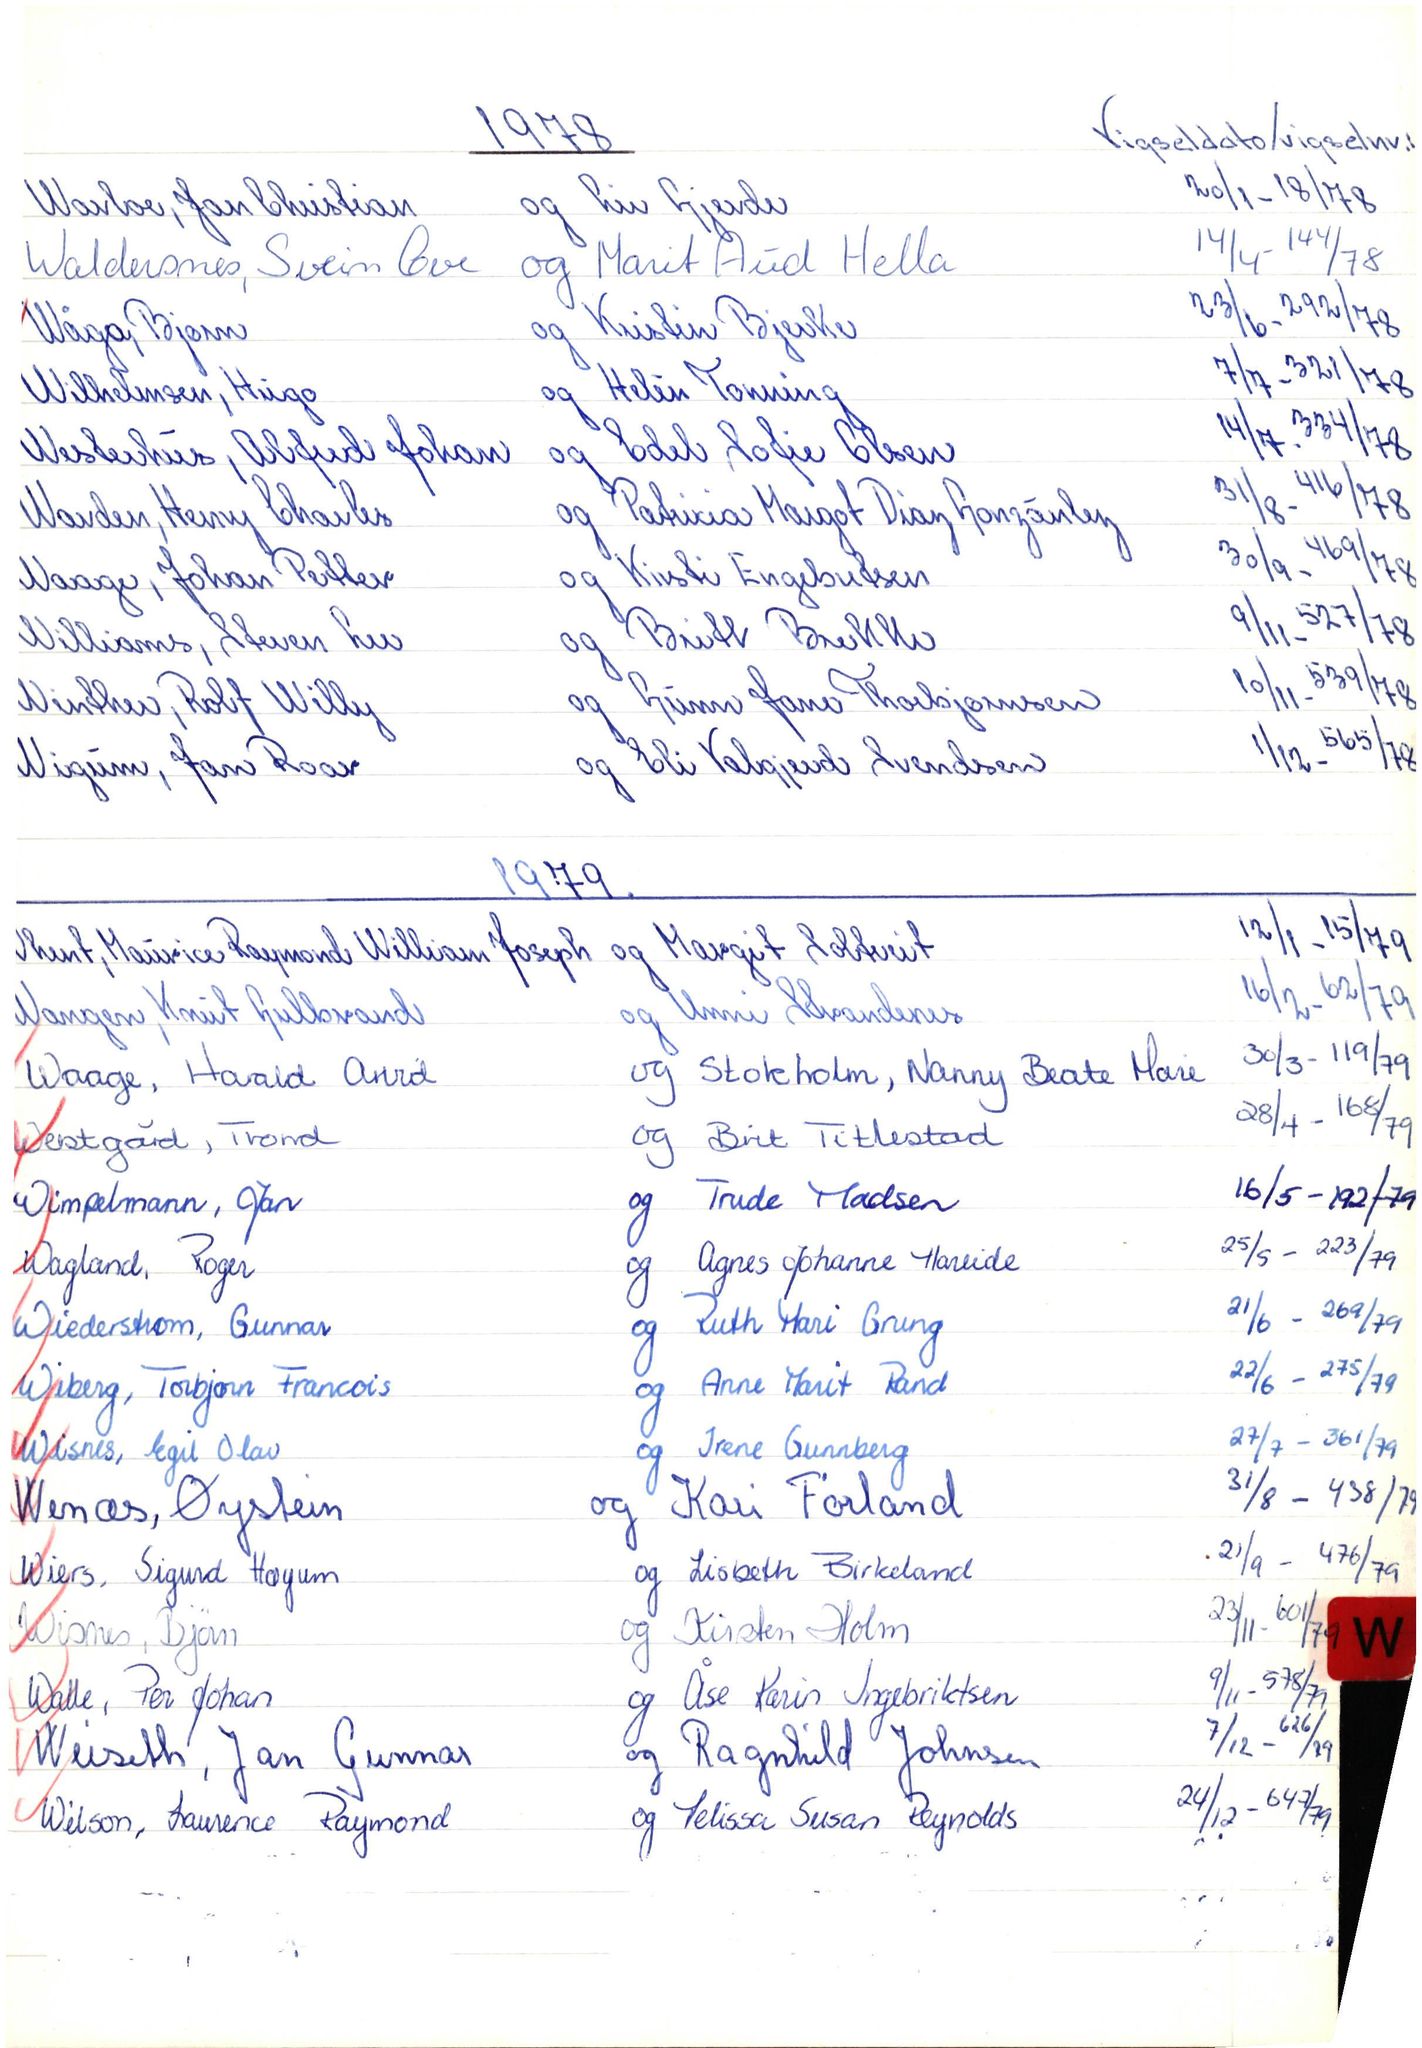 1978
Vigselsdato/vigselnr.:
Warloe, Jan Christian og Liv Gjerde 20/1 - 18/78
Waldersnes, Svein Ove og Marit Aud Hella 14/4 - 144/78
Wåge, Bjørn og Kristin Bjerke 23/6 - 292/78
Wilhelmsen, Hugo og Helén Tonning 7/7 - 321/78
Westerhus, Alfred Johan og Edel Sofie Olsen 14/7 - 334/78
Warden, Henry Charles og Patricia Margot Diaz Gonzánlez 31/8 - 416/78
Waage, Johan Petter og Kirsti Engebretsen 30/9 - 469/78
Williams, Steven Lee og Britt Brekke 9/11 - 527/78
Winther, Rolf Willy og Gunn Jane Thorbjørnsen 10/11 - 539/78
Wigum, Jan Roar og Eli Valgjerd Svendsen 1/12 - 565/78
1979.
Maurice Raymond William Joseph og Margit Soltveit 12/1 - 15/79
Wangen, Knut Gulbrand og Unni Strandenes 16/2 - 62/79
Waage, Harald Arvid og Stokholm, Nanny Beate Marie 30/3 - 119/79
Westgård, Trond og Brit Titlestad 28/4 - 168/79
Wimpelmann, Jan og Trude Madsen 16/5 - 192/79
Wagland, Roger og Agnes Johanne Hareide 25/5 - 223/79
Wiederstrøm, Gunnar og Ruth Mari Grung 21/6 - 269/79
Wiberg, Torbjørn Francois og Anne Marit Rand 22/6 - 275/79
Wisnes, Egil Olav og Irene Gunnberg 27/7 - 361/79
Wenæs, Øystein og Kari Førland 31/8 - 438/79
Wiers, Sigurd Høyum og Lisbeth Birkeland 21/9 - 476/79
Wisnes, Bjørn og Kirsten Holm 23/11 - 601/79
W
Walle, Per Johan og Åse Karin Ingebriktsen 9/11 - 578/79
Weiseth, Jan Gunnar og Ragnhild Johnsen 7/12 - 626/79
Wilson, Laurence Raymond og Melissa Susan Reynolds 24/12 - 647/79